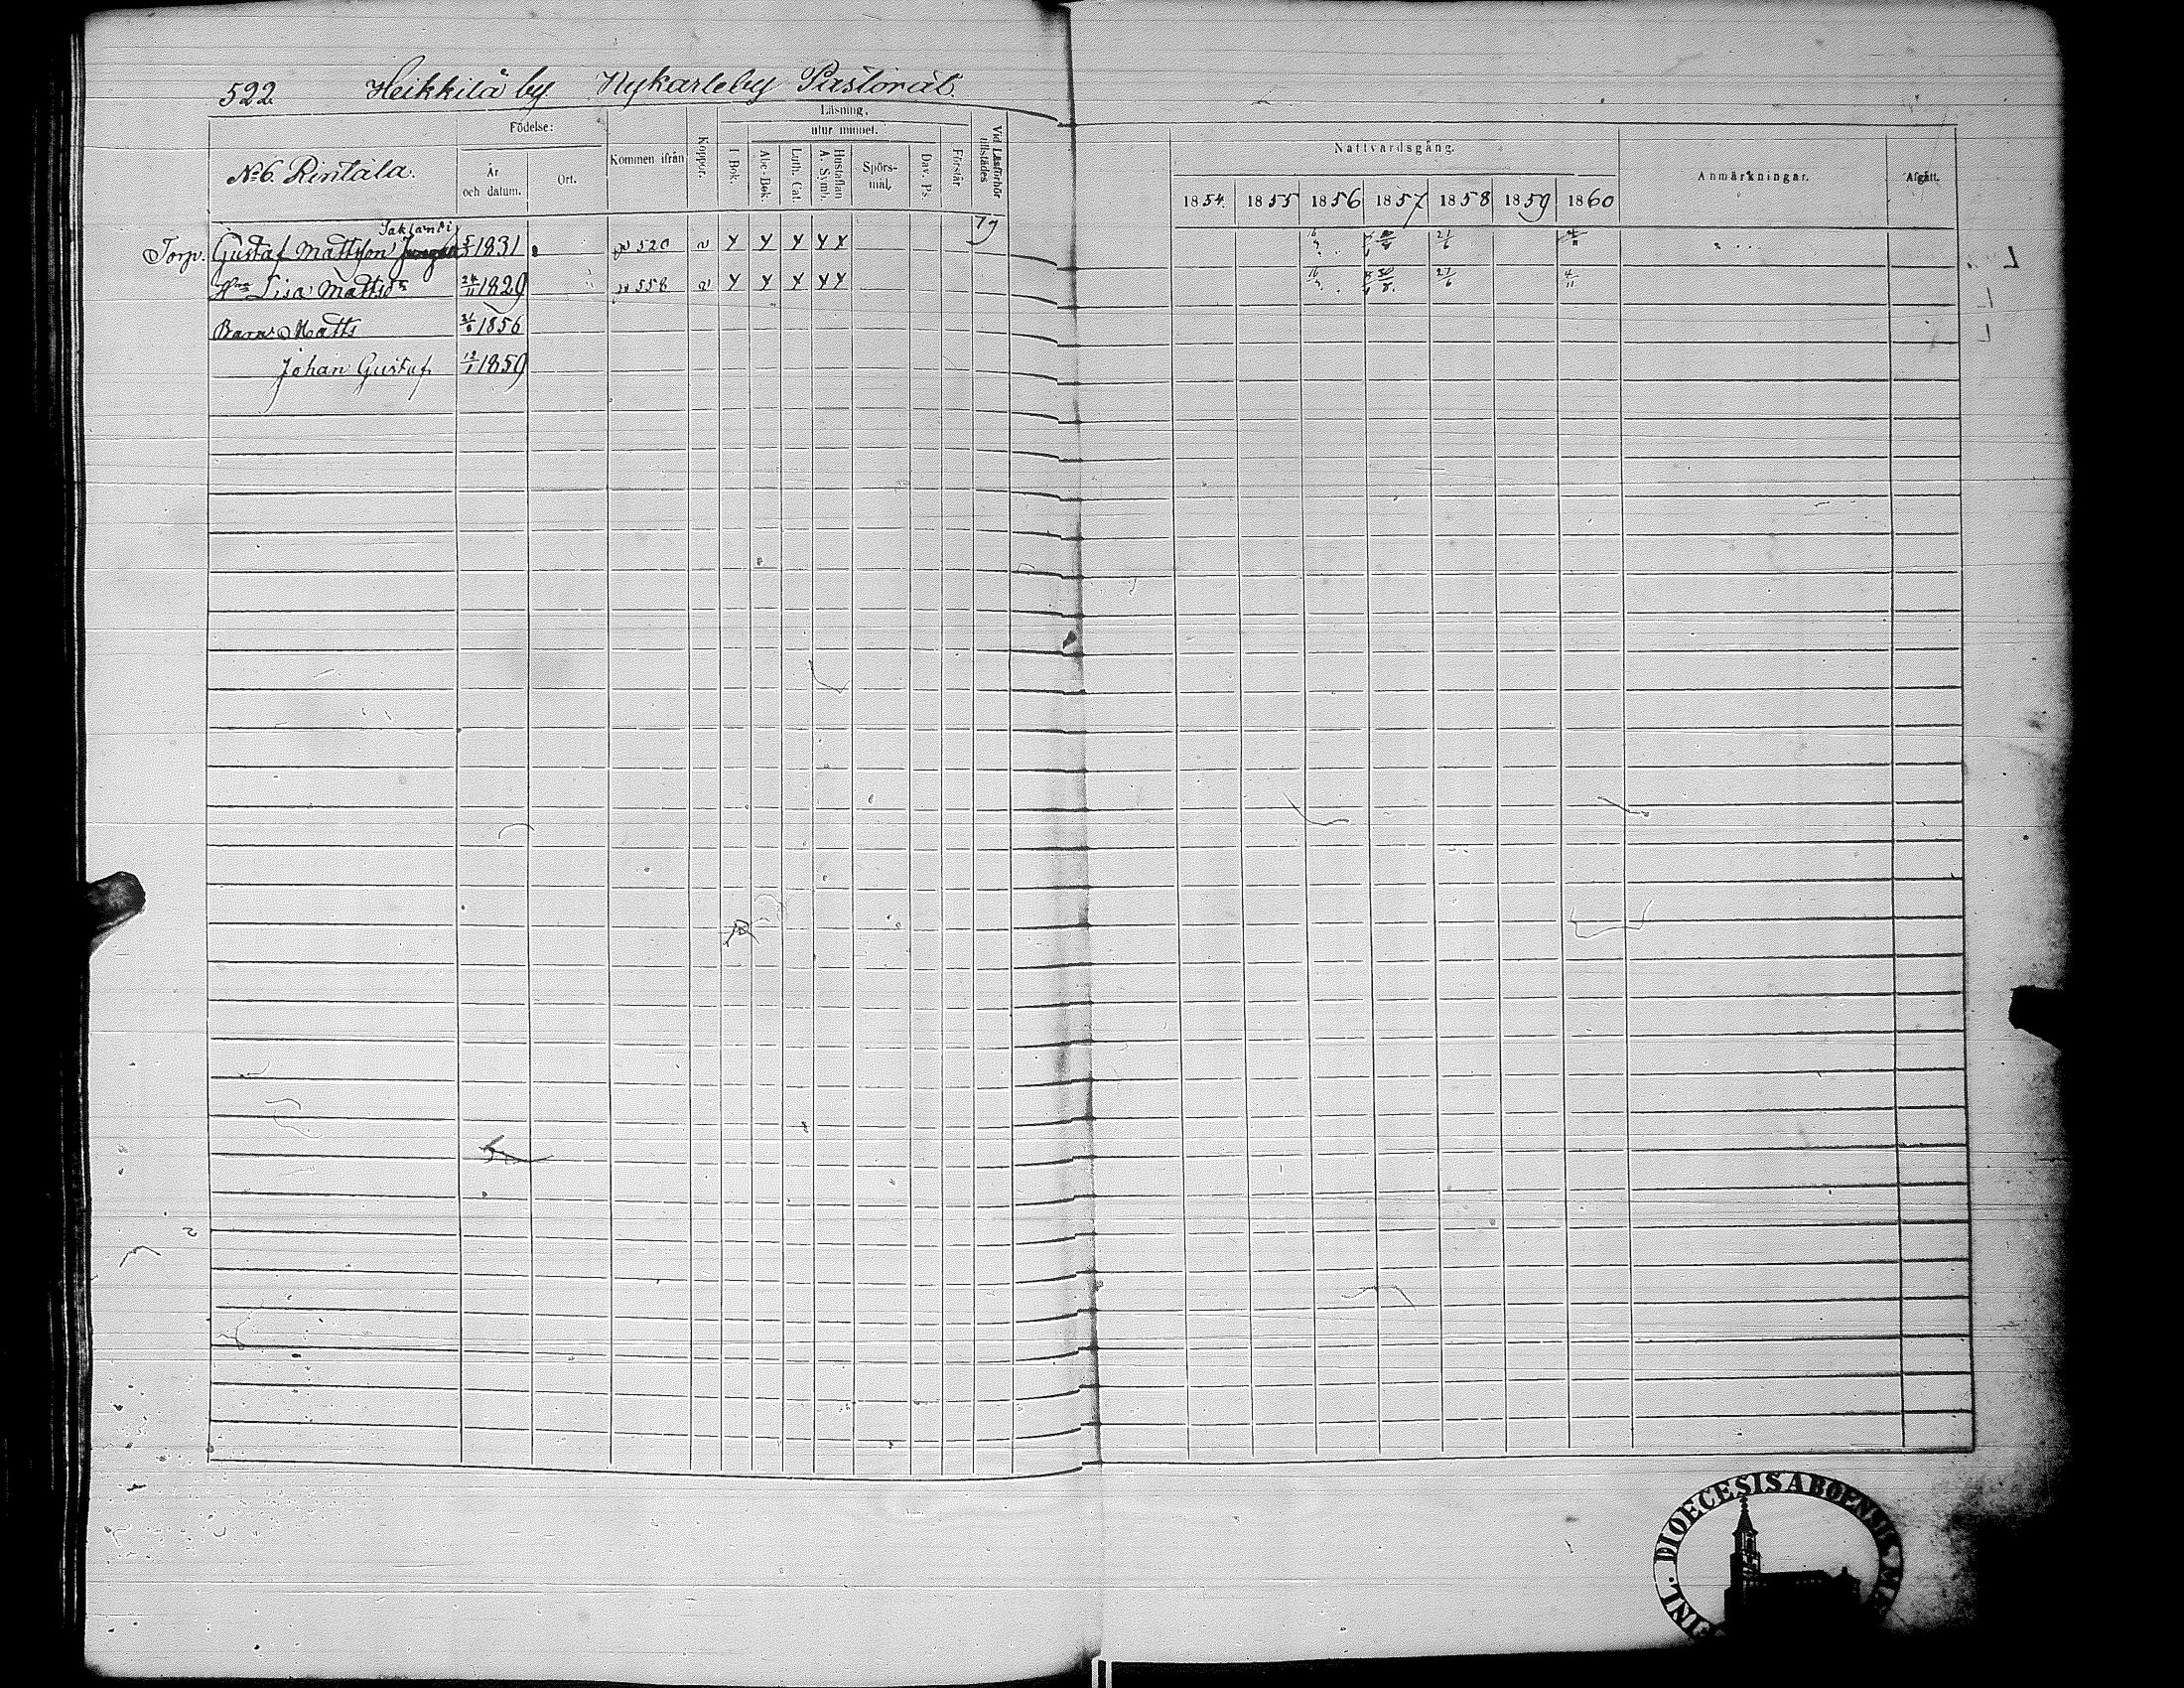 522 Heikkilä by Nykarleby Pastorat.
Läsning,
Födelse: utur minnet.
Nº 6. Rintala. År och datum. Ort. Kommen ifrån Koppor. I Bok. Abc-Bok. Luth. Cat. Hustaflan A. Symb. Spörsmål. Dav. Ps. Förstår Vid Läsförhör tillstädes
Nattvardsgång.
Anmärkningar. Afgått.
1854. 1855 1856 1857 1858 1859 1860
Torp. Gustaf Mattsson 1831 520
Lisa Mattsdr 24/11 1829 558 21/6 4/11
Barn: Matts 1856
Johan Gustaf 1859
FINL. DIOECESIS ABOENSIS